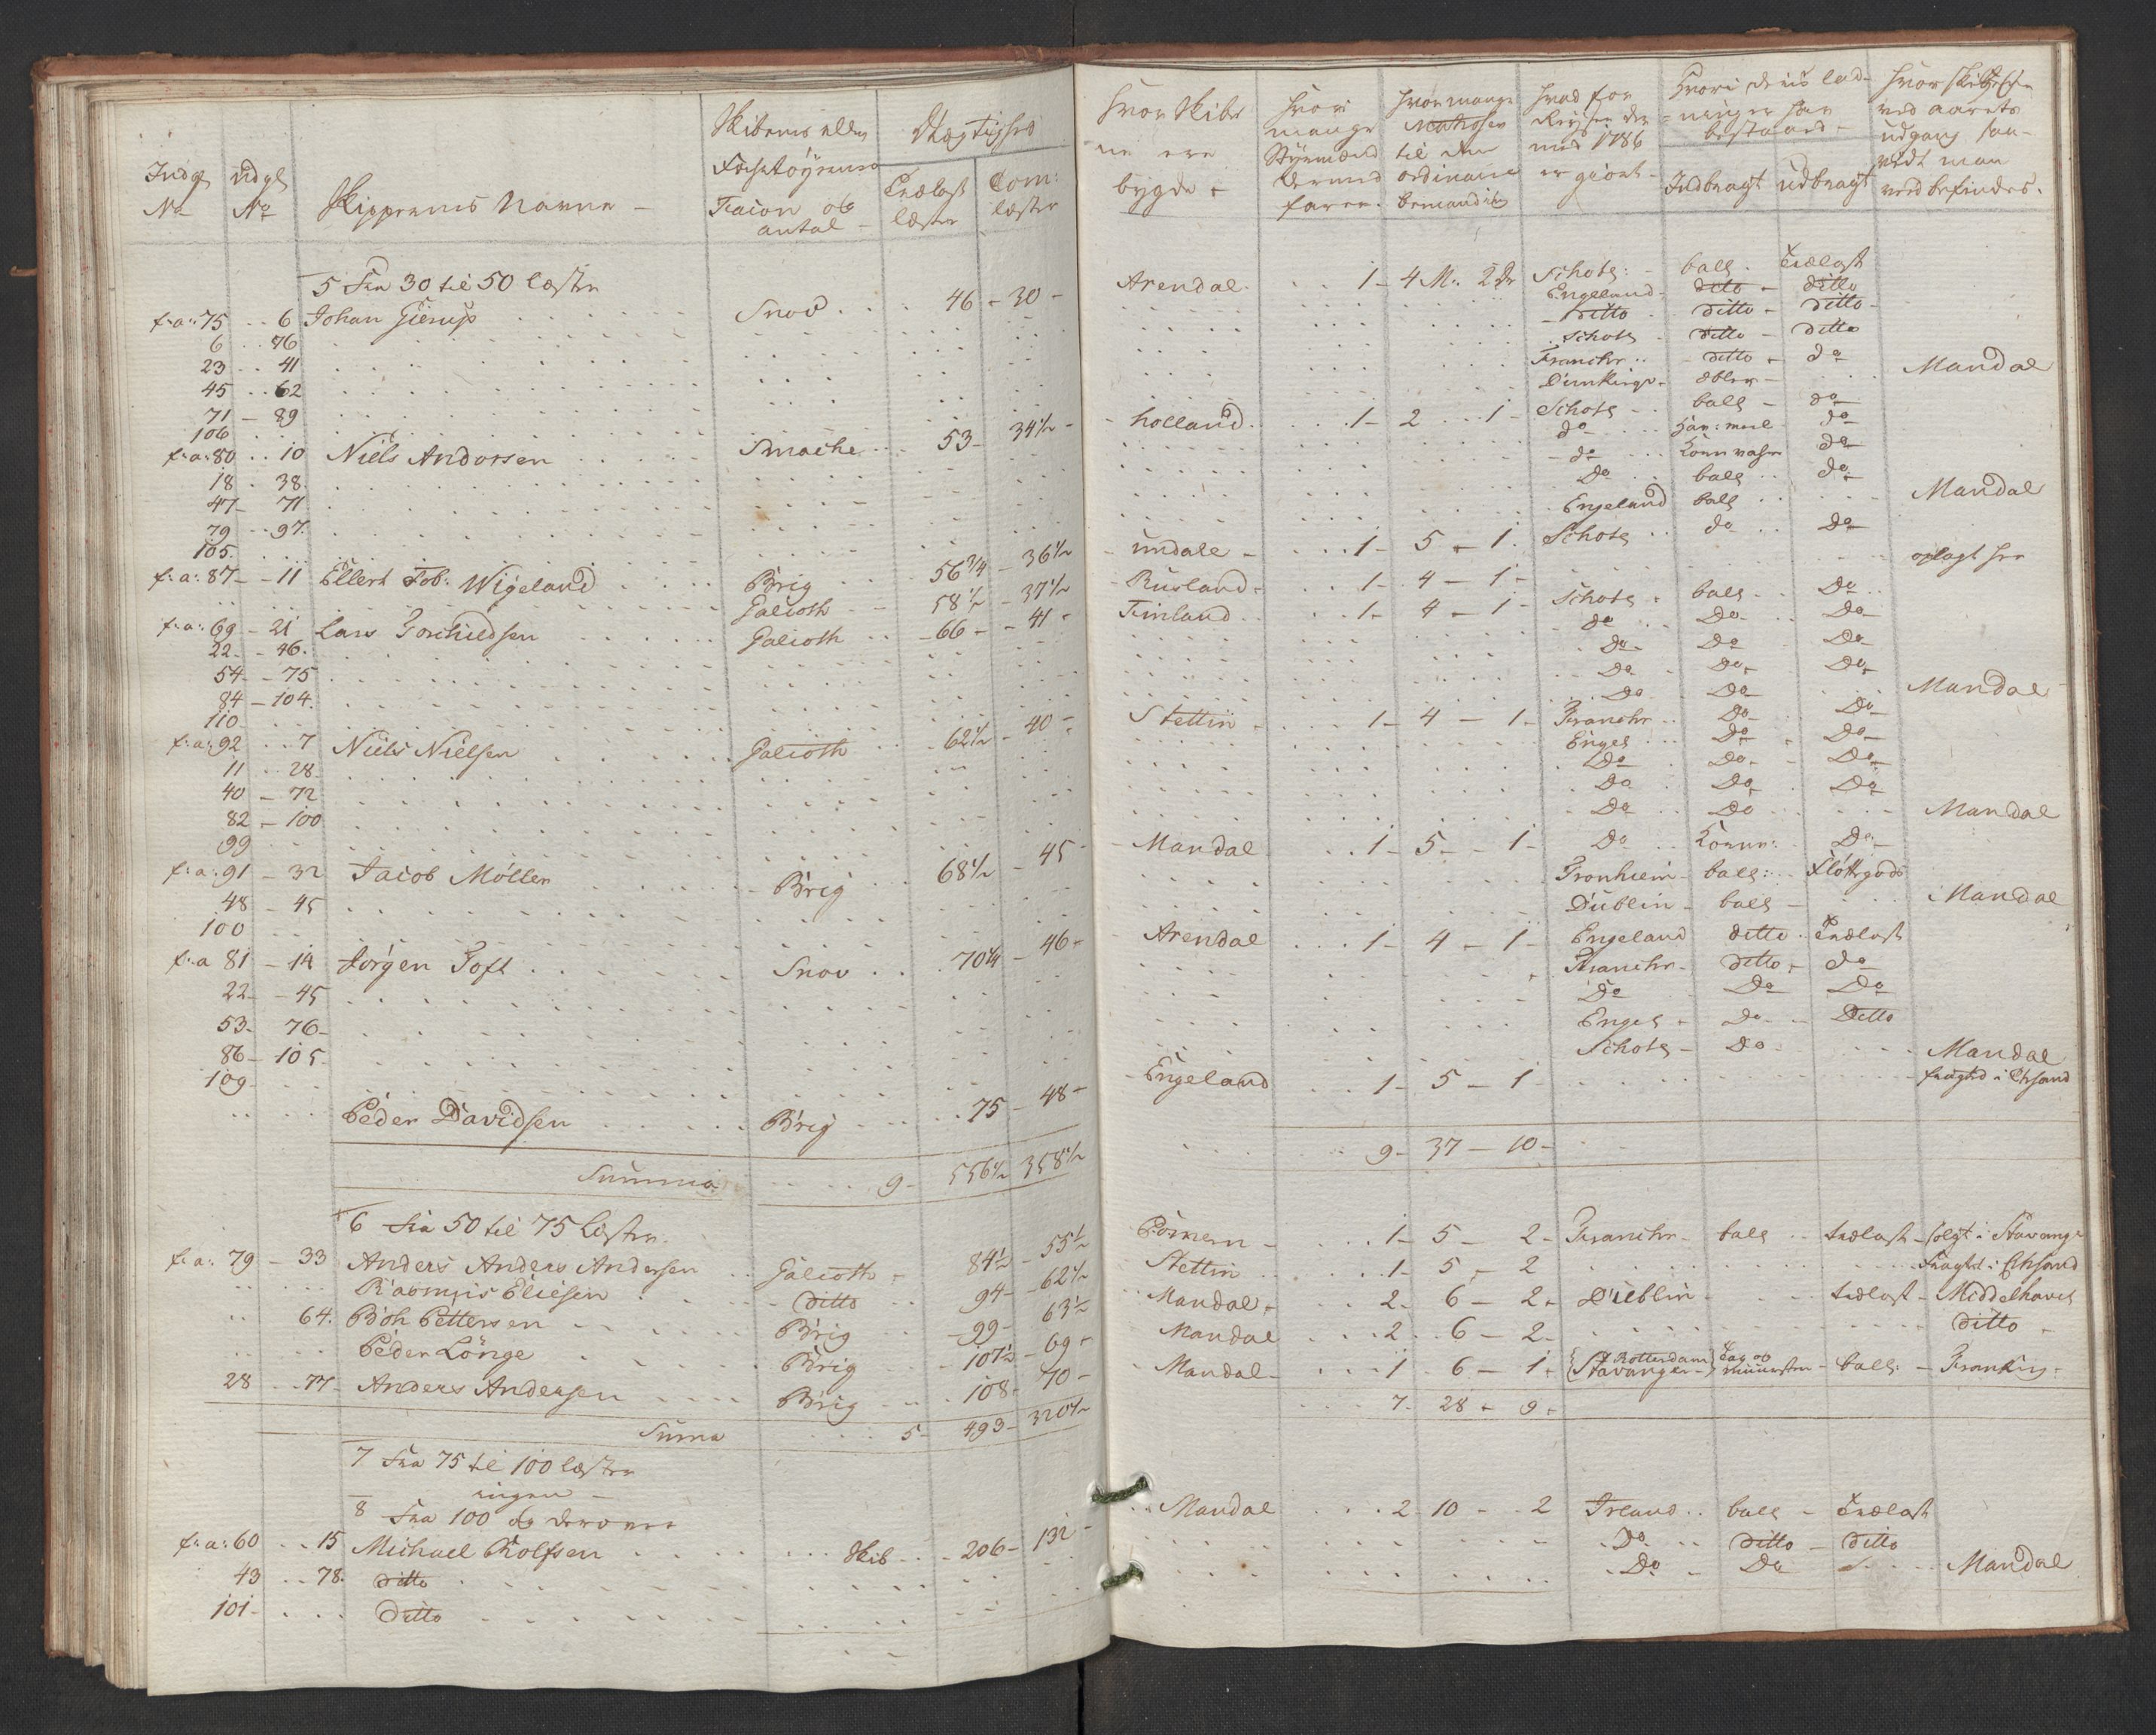 Indg No
Udg No
Skipperens Navne
Skibenes eller Fartøyernes Facion og antal
Dregtighed
Trælast læster
Com: læster
5 Fra 30 til 50 læster
f:a: 75 6 Johan Gierup Snov 46 30
6 76
23 41
45 62
71 89
106
f:a: 80 10 Niels Andersen Smache 53 34½
18 38
47 71
79 97
105
f:a: 87 11 Ellert Tob: Wigeland Brig 56¾ 36½
Galioth 58½ 37½
f:a: 69 21 Lars Torkieldsen Galioth 66 41
22 46
54 75
84 104
110
f:a: 92 7 Niels Nielsen Galioth 62½ 40
11 28
40 72
82 100
99
f:a: 91 32 Jacob Møller Brig 68½ 45
48 45
100
f:a 81 14 Jørgen Toft Snov 70¼ 46
22 45
53 76
86 105
109
Peder Davidsen Brig 75 48
Summa 9 556½ 358½
6 Fra 50 til 75 Læster
f:a: 79 33 Anders Anders Andersen Galioth 84½ 55½
Rasmus Eliesen ditto 94 62½
64 Böh Pettersen Brig 99 63½
Peder Lönge Brig 107½ 69
28 77 Anders Andersen Brig 108 70
Suma 5 493 320½
7 Fra 75 til 100 læster
ingen
8 Fra 100 og derover
f:a: 60 15 Michael Rolfsen Skib 206 132
43 78 ditto
101 ditto
Hvor Skibene ere bygde
Hvor mange Styrmænd dermed farer
Hvor mange Matroser til den ordinaire bemanding
Hvad for Reyser der med 1786 er giort
Hvori deris ladninger har bestaaed
Indbragt
Udbragt
Hvor skibet sig ved aarets udgang samt man ved befindes
Arendal 1 4 M. 2 Dr Schotl: ball. trælast
Engelland ditto ditto
ditto ditto ditto
Schotl ditto ditto
Franchr ditto do Mandal
Dunkirqv æbler
Holland 1 2 1 Schotl ball do
do Hav: meel do
do Kornvahre do
Do ball do
Engeland ball Mandal
Undale 1 5 1 Schotl do do
oplagt her
Rusland 1 4 1
Finland 1 4 1 Schotl ball Do
do Do Do
Do Do Do
Do Do Do
Do Do Mandal
Stettin 1 4 1 Franchr Do Do
Engel Do Do
Do Do Do
Do Do Do
Do Do Mandal
Mandal 1 5 1 Do Korn: Do
Tronhiem ball: Fløttgods
Dublin ball Mandal
Arendal 1 4 1 Engeland ditto trælast
Franchr ditto do
Do Do Do
Engel Do Ditto
Schotl Do Mandal
Engeland 1 5 1 fragted i Chsand
9 37 10
Pomern 1 5 2 Franchr ball trælast solgt i Stavange
Stettin 1 5 2 fragted i Chsand
Mandal 2 6 2 Dublin trælast Middelhavet
Mandal 2 6 2 ditto
Mandal 1 6 1 Rotterdam Stavanger Tag og muursten ball: Frankrig
7 28 9
Mandal 2 10 2 Irland ball trælast
Do ditto ditto
Do Do Mandal